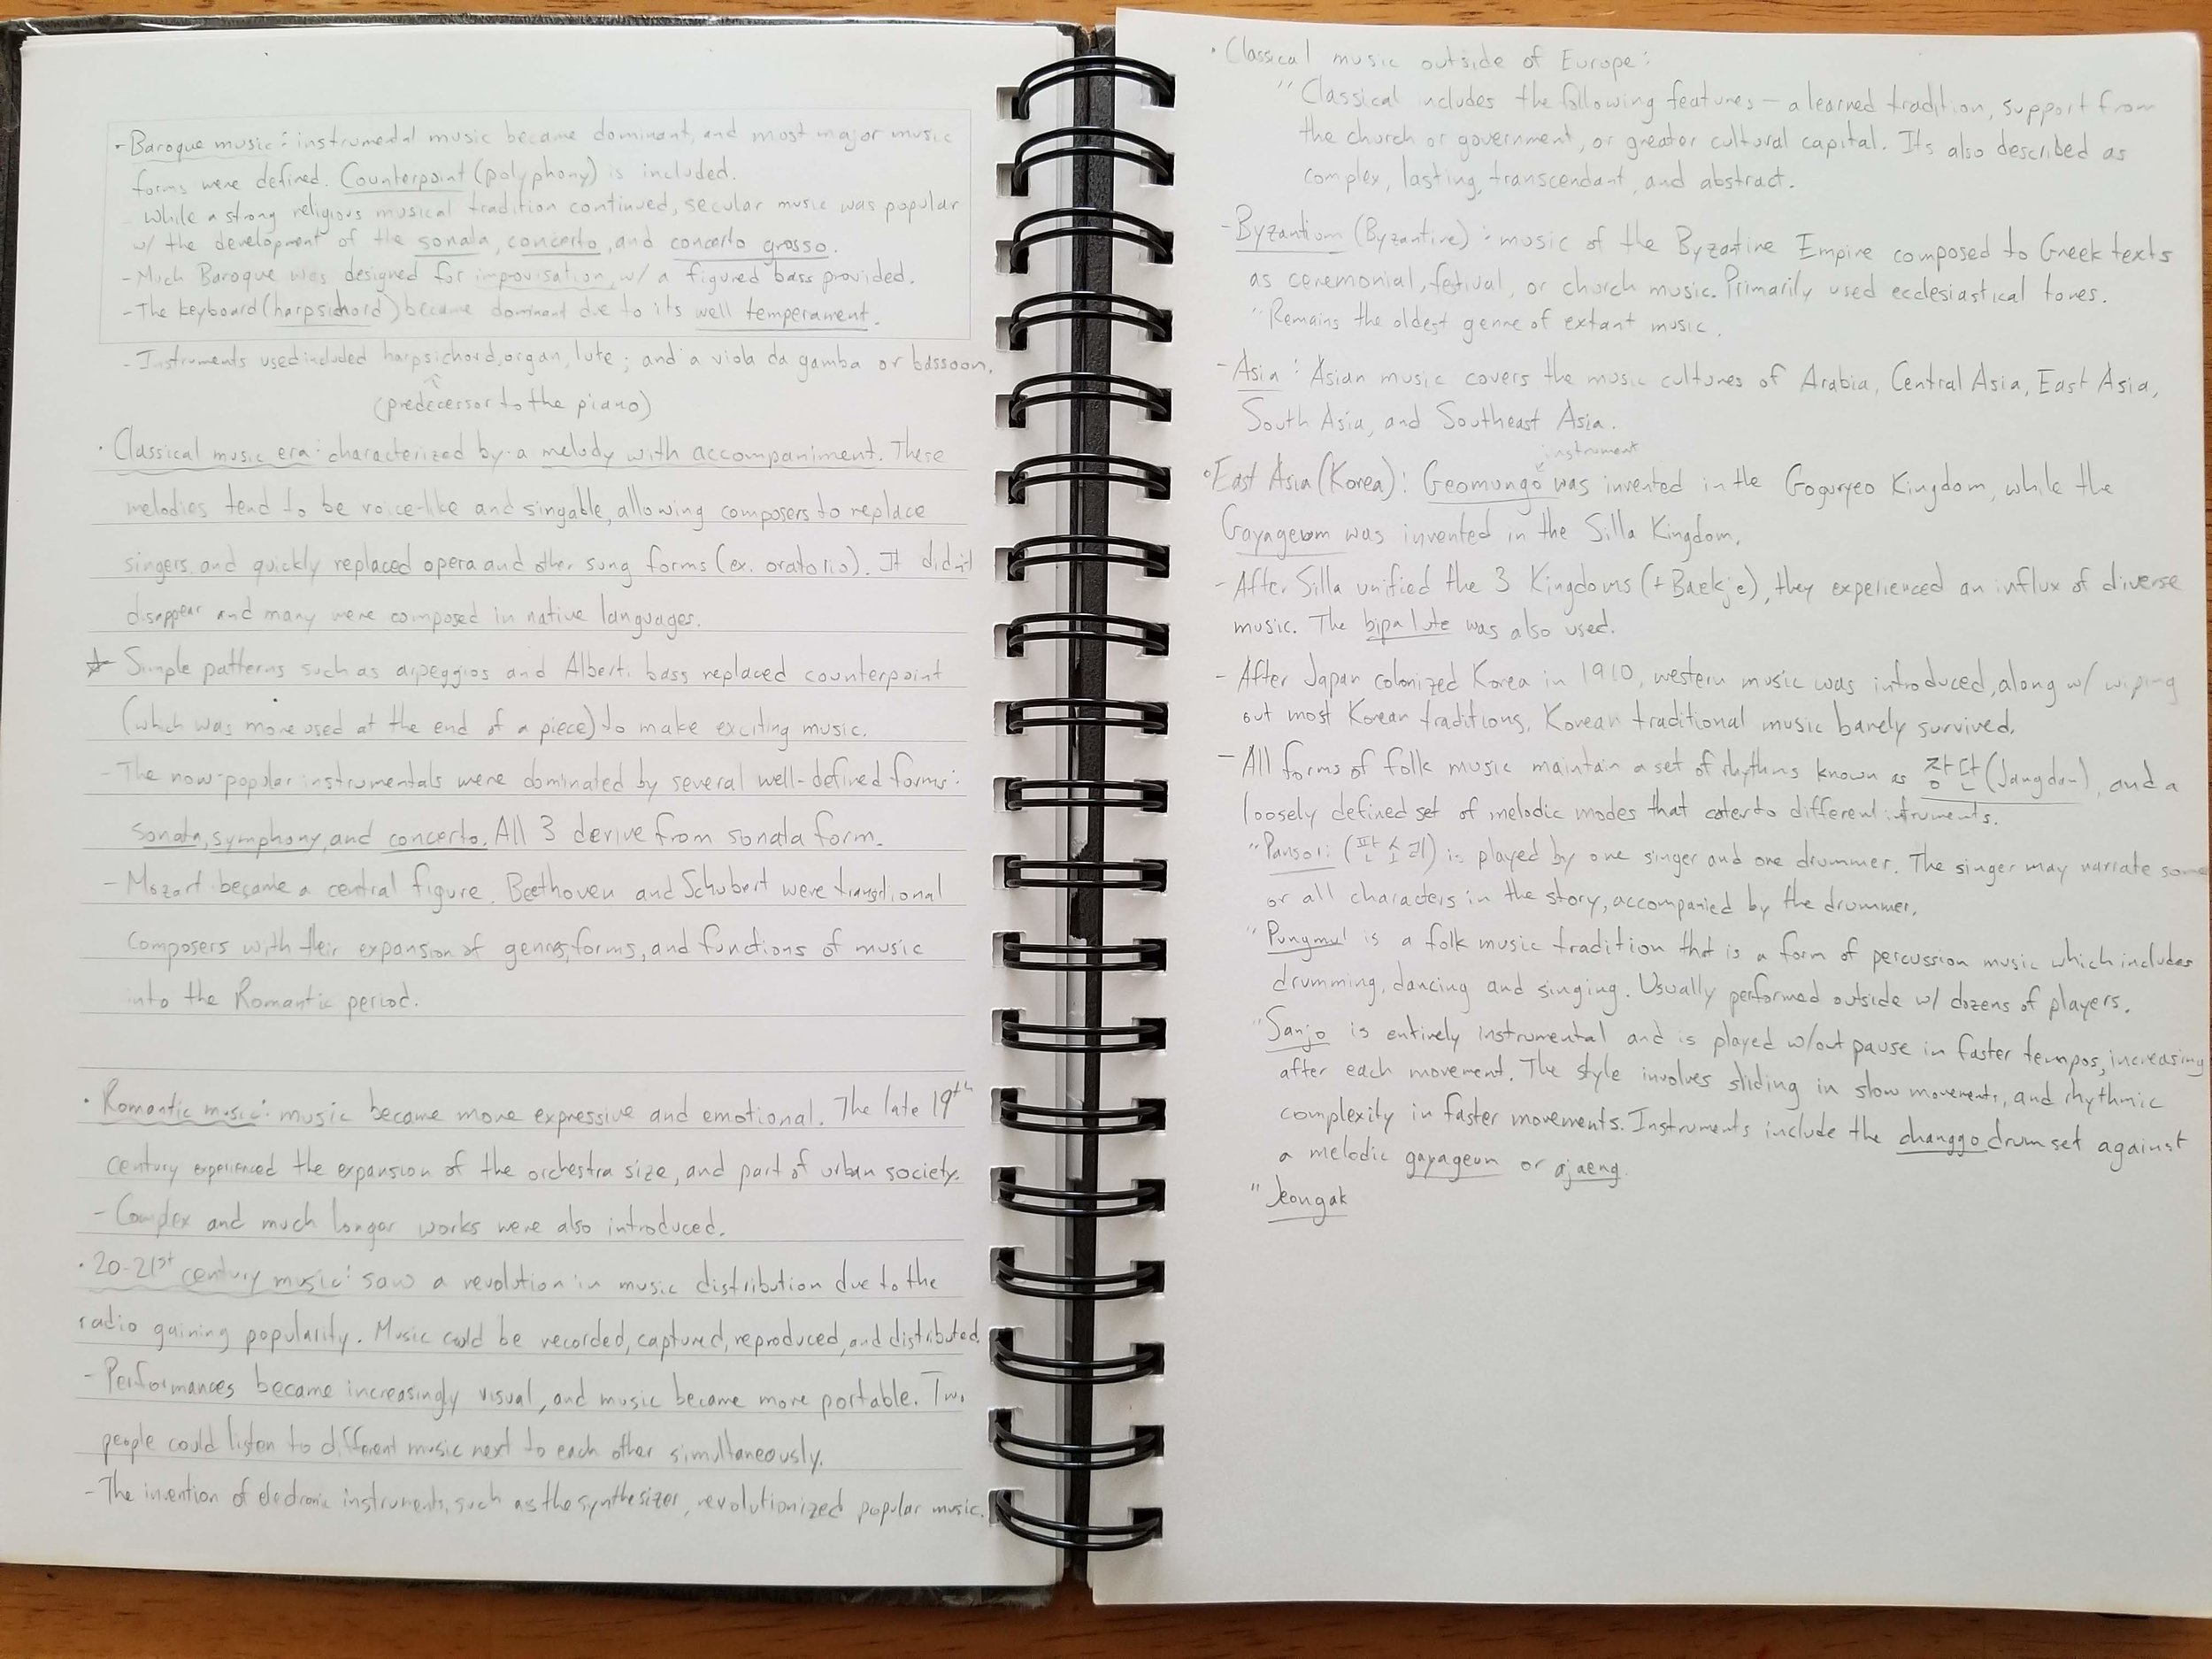 - Baroque music: instrumental music became dominant, and most major music
forms were defined. Counterpoint (polyphony) is included.
- While a strong religious musical tradition continued, secular music was popular
w/ the development of the sonata, concerto, and concerto grosso.
- Much Baroque was designed for improvisation, w/ a figured bass provided.
- The keyboard (harpsichord) became dominant due to its well temperament.
- Instruments used included harpsichord, organ, lute; and a viola da gamba or bassoon.
(predecessor to the piano)
• Classical music era: characterized by a melody with accompaniment. These
melodies tend to be voice-like and singable, allowing composers to replace
singers, and quickly replaced opera and other sung forms (ex. oratorio). It didn't
disappear and many were composed in native languages.
☆ Simple patterns such as arpeggios and Alberti bass replaced counterpoint
(which was more used at the end of a piece) to make exciting music.
- The now-popular instrumentals were dominated by several well-defined forms:
sonata, symphony, and concerto. All 3 derive from sonata form.
- Mozart became a central figure. Beethoven and Schubert were transitional
composers with their expansion of genres, forms, and functions of music
into the Romantic period.
• Romantic music: music became more expressive and emotional. The late 19th
century experienced the expansion of the orchestra size, and part of urban society.
- Complex and much longer works were also introduced.
• 20-21st century music: saw a revolution in music distribution due to the
radio gaining popularity. Music could be recorded, captured, reproduced, and distributed.
- Performances became increasingly visual, and music became more portable. Two
people could listen to different music next to each other simultaneously.
- The invention of electronic instruments, such as the synthesizer, revolutionized popular music.
• Classical music outside of Europe:
" Classical includes the following features – a learned tradition, support from
the church or government, or greater cultural capital. Its also described as
complex, lasting, transcendant, and abstract.
- Byzantium (Byzantine): music of the Byzantine Empire composed to Greek texts
as ceremonial, festival, or church music. Primarily used ecclesiastical tones.
" Remains the oldest genre of extant music.
- Asia: Asian music covers the music cultures of Arabia, Central Asia, East Asia,
South Asia, and Southeast Asia.
instrument
• East Asia (Korea): Geomungo was invented in the Goguryeo Kingdom, while the
Gayageum was invented in the Silla Kingdom.
- After Silla unified the 3 Kingdoms (+ Baekje), they experienced an influx of diverse
music. The bipa lute was also used.
- After Japan colonized Korea in 1910, western music was introduced, along w/ wiping
out most Korean traditions. Korean traditional music barely survived.
- All forms of folk music maintain a set of rhythms known as 장단 (Jangdan), and a
loosely defined set of melodic modes that cater to different intruments.
" Pansori (판소리) is played by one singer and one drummer. The singer may narrate some
or all characters in the story, accompanied by the drummer.
" Pungmul is a folk music tradition that is a form of percussion music which includes
drumming, dancing and singing. Usually performed outside w/ dozens of players.
" Sanjo is entirely instrumental and is played w/out pause in faster tempos, increasing
after each movement. The style involves sliding in slow movements, and rhythmic
complexity in faster movements. Instruments include the changgo drum set against
a melodic gayageum or ajaeng.
" Jeongak